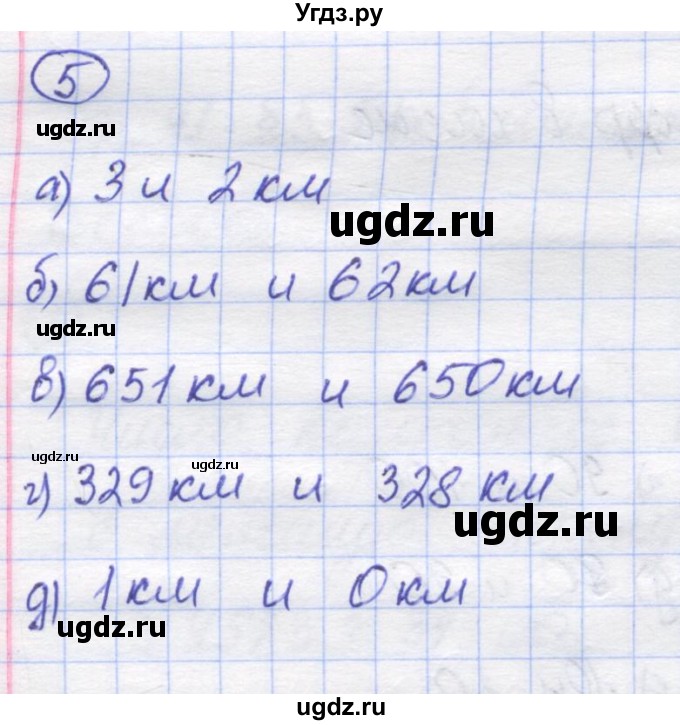 Угдз.ру
5
ugdz.ru
а) 3 и 2 км
ugdz.ru
б) 61 км и 62 км
ugdz.ru
в) 651 км и 650 км
ugdz.ru
ugdz.ru
г) 329 км и 328 км
ugdz.ru
д) 1 км и 0 км
ugdz.ru
ugdz.ru